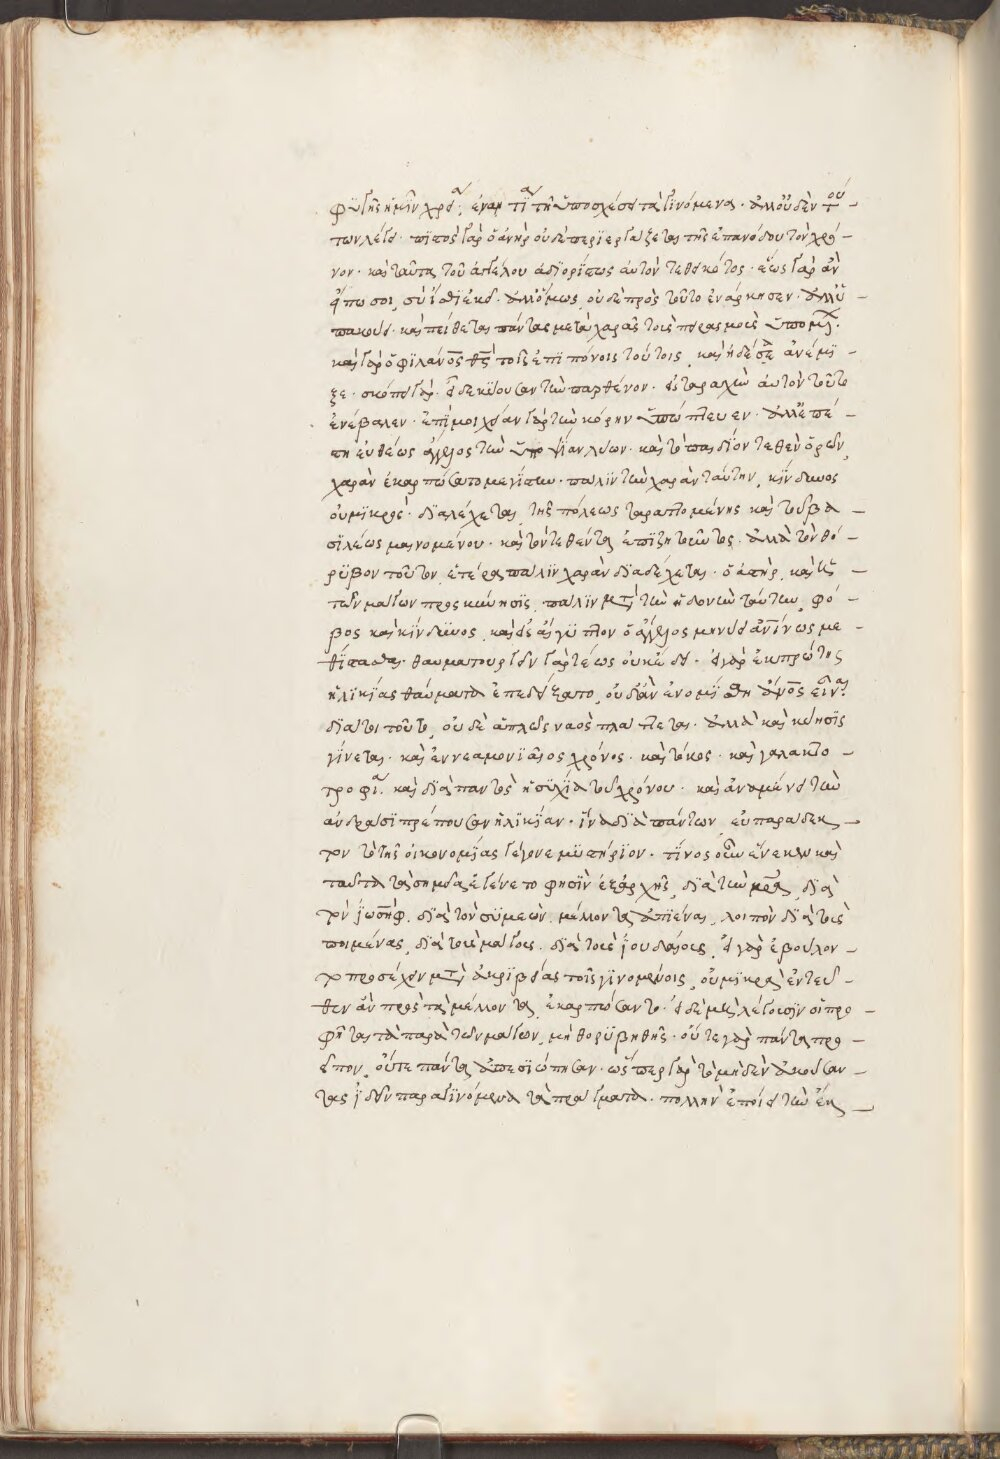 φυγῆς ἡμῖν χρεία; ἐναντία τῇ ὑποσχέσει τὰ γινόμενα. ἀλλ' οὐδὲν τού-
των λέγει. πιστὸς γὰρ ὁ ἀνήρ. οὐδὲ περιεργάζεται τῆς ἐπανόδου τὸν χρό-
νον. καὶ ταῦτα τοῦ ἀγγέλου ἀδιορίστως αὐτὸν τεθεικότος. ἕως γὰρ ἂν
εἴπω σοι, σὺ ἴσθι ἐκεῖ. ἀλλ' ὅμως οὐδὲ πρὸς τοῦτο ἐνάρκησεν. ἀλλ' ὑ-
πακούει. καὶ πείθεται πάντας μετὰ χαρᾶς τοὺς πειρασμοὺς ὑπομένων.
καὶ γὰρ ὁ φιλάνος θς τοῖς ἐπιπόνοις τούτοις, καὶ ἡδέα ἀνέμι-
ξε. σκόπει γάρ. εἶδε κύουσαν τὴν παρθένον. εἰς ταραχὴν αὐτὸν τοῦτο
ἐνέβαλεν. ἐπὶ μοιχείαν γὰρ τὴν κόρην ὑπώπτευεν. ἀλλ' ἐπέ-
στη εὐθέως ἄγγελος τὴν ὑποψίαν λύων. καὶ τὸ παιδίον τεθὲν ὁρῶν,
χαρὰν ἐκαρπώσατο μεγίστην. πάλιν τὴν χαρὰν ταύτην, κίνδυνος
οὐ μικρὸς διαδέχεται, τῆς πόλεως ταραττομένης καὶ τοῦ βα-
σιλέως μαινομένου. καὶ τὸν τεθέντα ἐπιζητοῦντος. ἀλλὰ τὸν θό-
ρυβον τοῦτον, ἑτέρα πάλιν χαρὰ διαδέχεται. ὁ ἀστήρ, καὶ ἡ
τῶν μάγων προσκύνησις, πάλιν μετὰ τὴν ἡδονὴν ταύτην, φό-
βος καὶ κίνδυνος, καὶ εἰς αἴγυπτον ὁ ἄγγελος μηνύει ἀνίνως με-
θίστασθαι. θαυματουργεῖν γὰρ τέως οὐκ ἔδει. εἰ γὰρ ἐκ πρώτης
ἡλικίας θαύματα ἐπεδείξατο, οὐδ' ἂν ἐνομίσθη ἄνος εἶναι.
διά τοι τοῦτο, οὐδὲ ἁπλῶς ναὸς πλάττεται. ἀλλὰ καὶ κύησις
γίνεται. καὶ ἐννεαμονιαῖος χρόνος. καὶ τόκος. καὶ γαλακτο-
τροφία. καὶ διὰ παντὸς ἡσυχία τοῦ χρόνου. καὶ ἀναμένει τὴν
ἀνδράσι πρέπουσαν ἡλικίαν. ἵνα διὰ πάντων, εὐπαράδεκ-
τον τὸ τῆς οἰκονομίας γέγονε μυστήριον. τίνος οὖν ἕνεκεν καὶ
ταῦτα τὰ σημεῖα ἐγένετο φησὶν ἐξ ἀρχῆς, διὰ τὴν μρα, διὰ
τὸν ἰωσὴφ. διὰ τὸν συμεὼν. μέλλοντα ἀπιέναι, λοιπὸν διὰ τοὺς
ποιμένας, διὰ τοὺς μάγους. διὰ τοὺς ἰουδαίους, εἰ γὰρ ἐβούλον-
το προσέχειν μετὰ ἀκριβείας τοῖς γινομένοις, οὐ μικρὰ ἐντεῦ-
θεν ἂν πρὸς τὰ μέλλοντα, ἐκαρπώσαντο. εἰ δὲ μὴ λέγουσιν οἱ προ-
φῆται τὰ παρὰ τῶν μάγων, μὴ θορυβηθῇς. οὔτε γὰρ πάντα προ-
εῖπον, οὔτε πάντα ἀπεσιώπησαν. ὥσπερ γὰρ τὸ μηδὲν ἀκούσαν-
τας ἰδεῖν παραγινόμενα τὰ πράγματα. πολλὴν ἐποίει τὴν ἔκ-